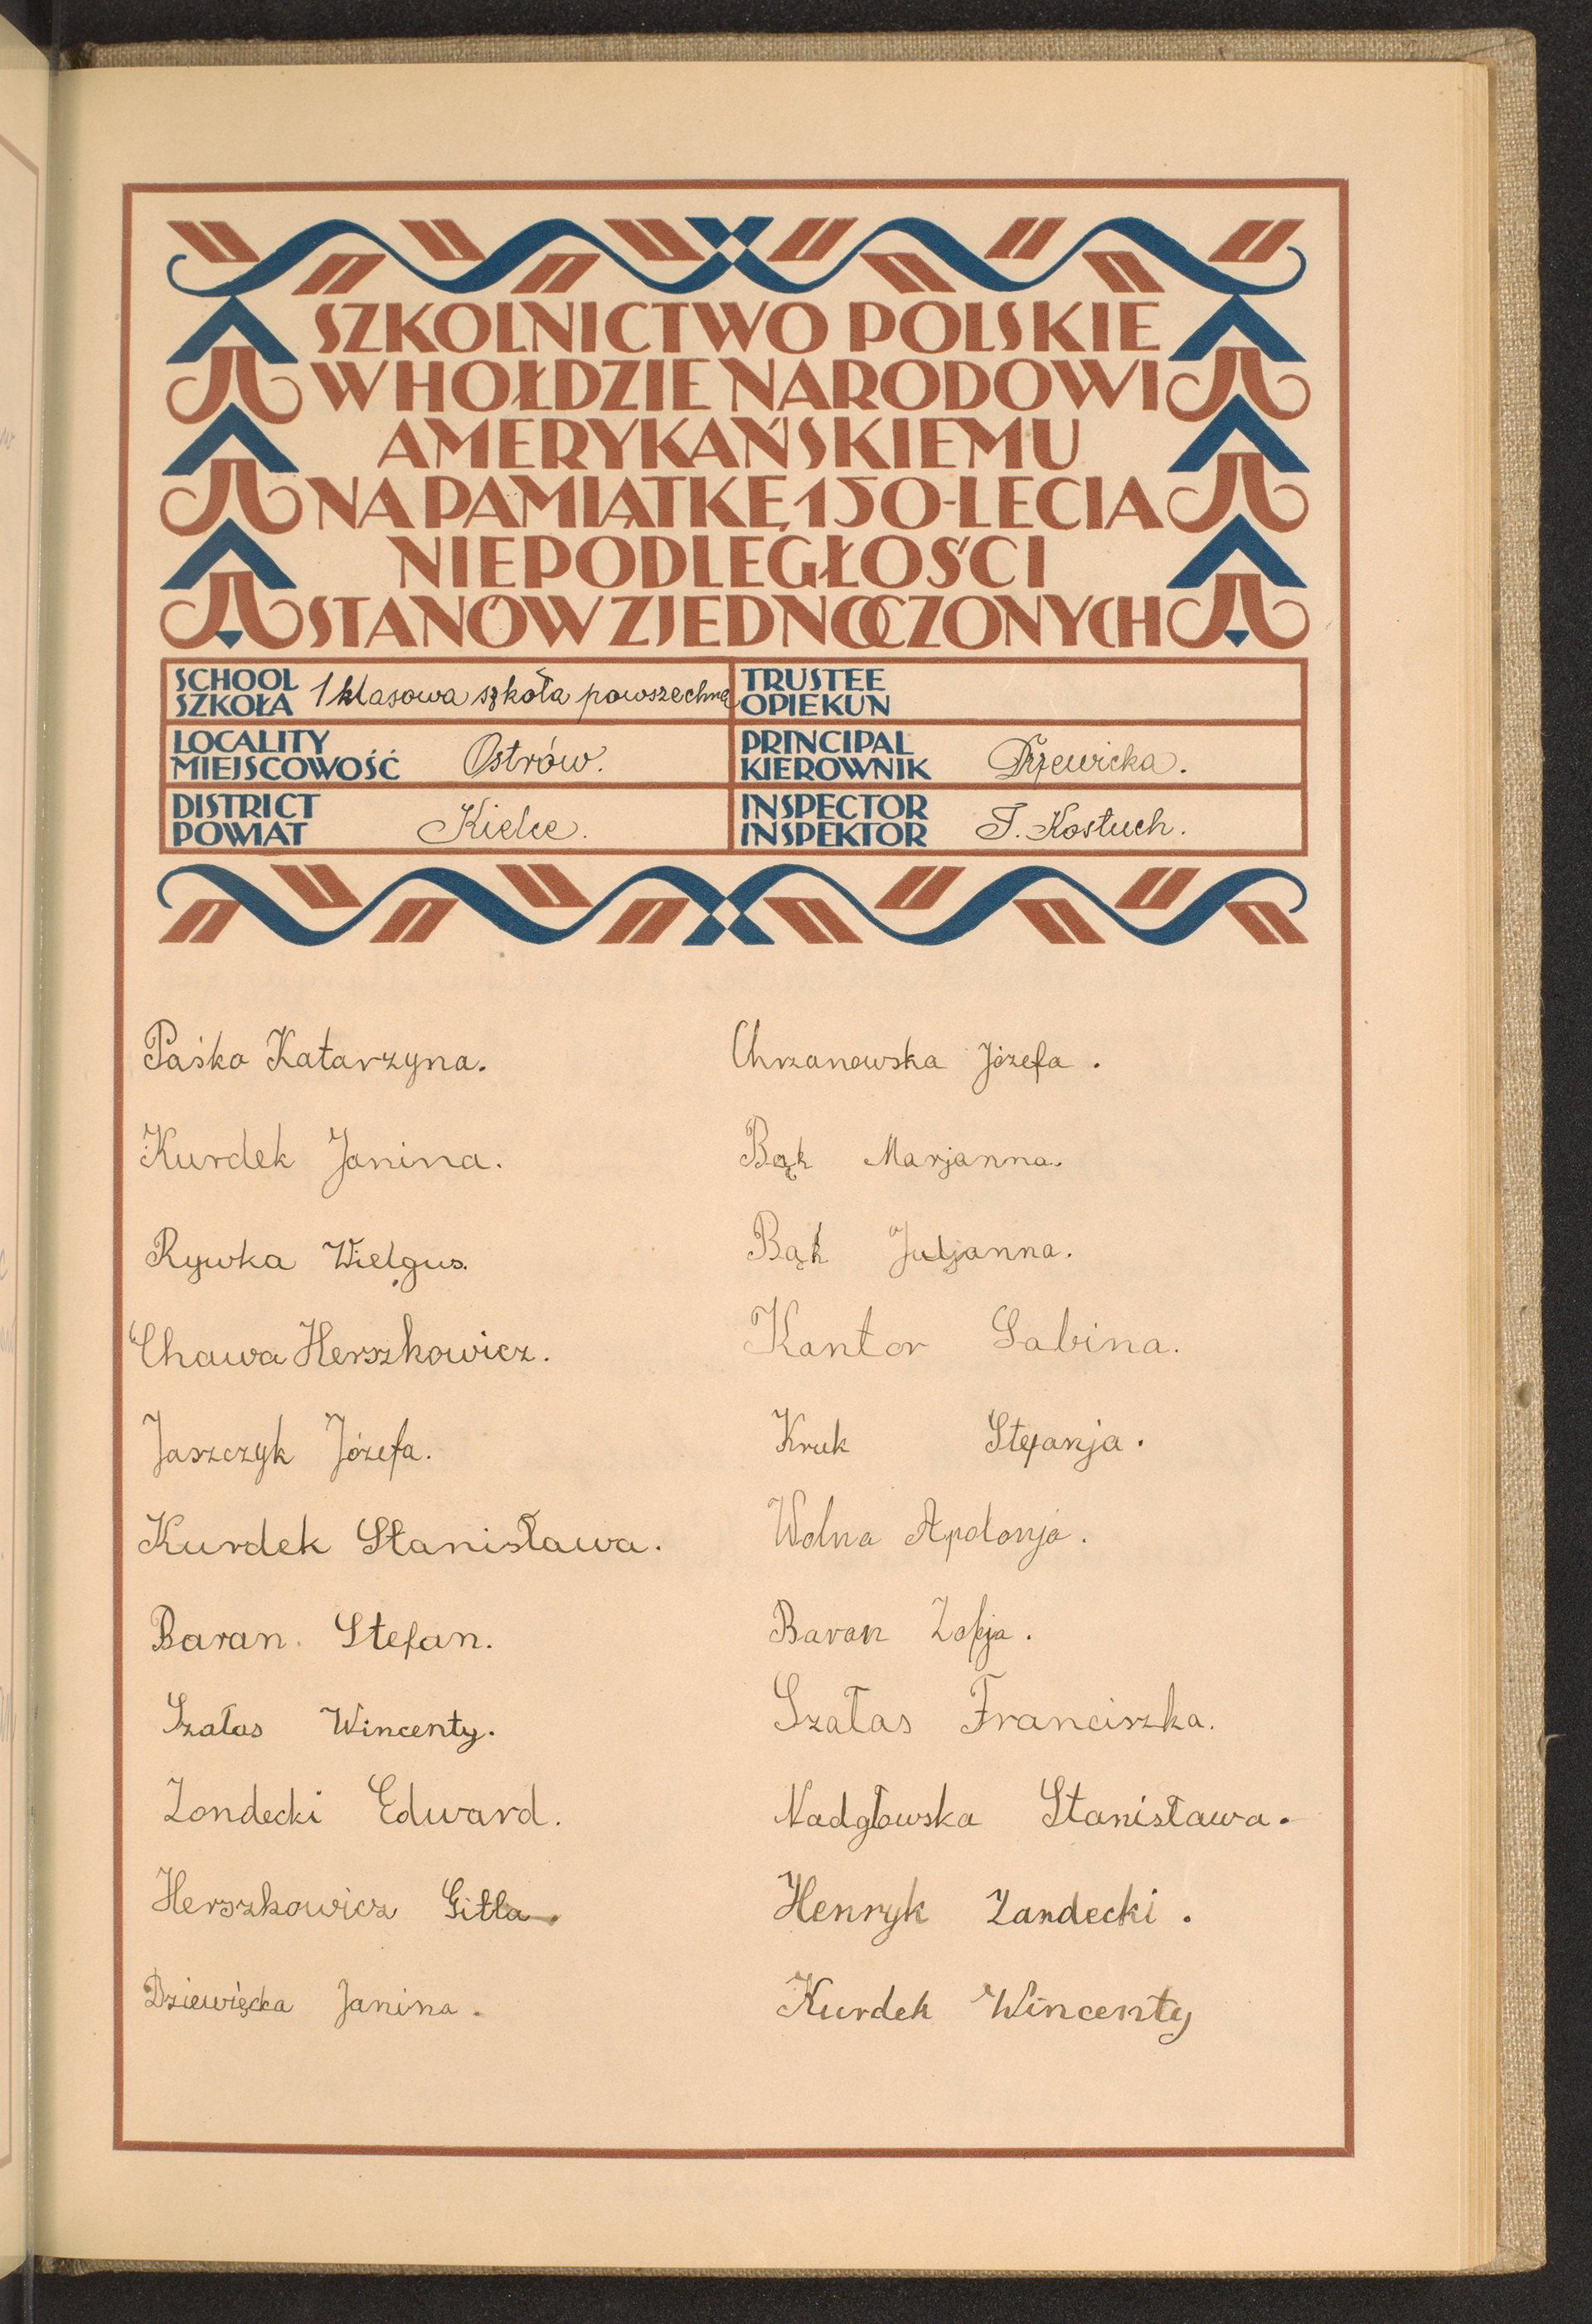 SZKOLNICTWO POLSKIE
W HOŁDZIE NARODOWI
AMERYKAŃSKIEMU
NA PAMIĄTKĘ 150-LECIA
NIEPODLEGŁOŚCI
STANÓW ZJEDNOCZONYCH
SCHOOL
SZKOŁA
1 klasowa szkoła powszechna
TRUSTEE
OPIEKUN
LOCALITY
MIEJSCOWOŚĆ
Ostrów.
PRINCIPAL
KIEROWNIK
DISTRICT
POWIAT
Kielce.
INSPECTOR
INSPEKTOR
T. Kostuch.
Paśko Katarzyna.
Kurdek Janina.
Rywka Wielgus.
Chawa Herszkowicz.
Jaszczyk Józefa.
Kurdek Stanisława.
Baran. Stefan.
Szałas Wincenty.
Zondecki Edward.
Herszkowicz Gitla.
Dziewięcka Janina.
Chrzanowska Józefa.
Bąk Marjanna.
Bąk Juljanna.
Kantor Sabina.
Kruk Stefanja.
Wolna Apolonja.
Baran Zofja.
Szałas Franciszka.
Nadgłowska Stanisława.
Henryk Zandecki.
Kurdek Wincenty